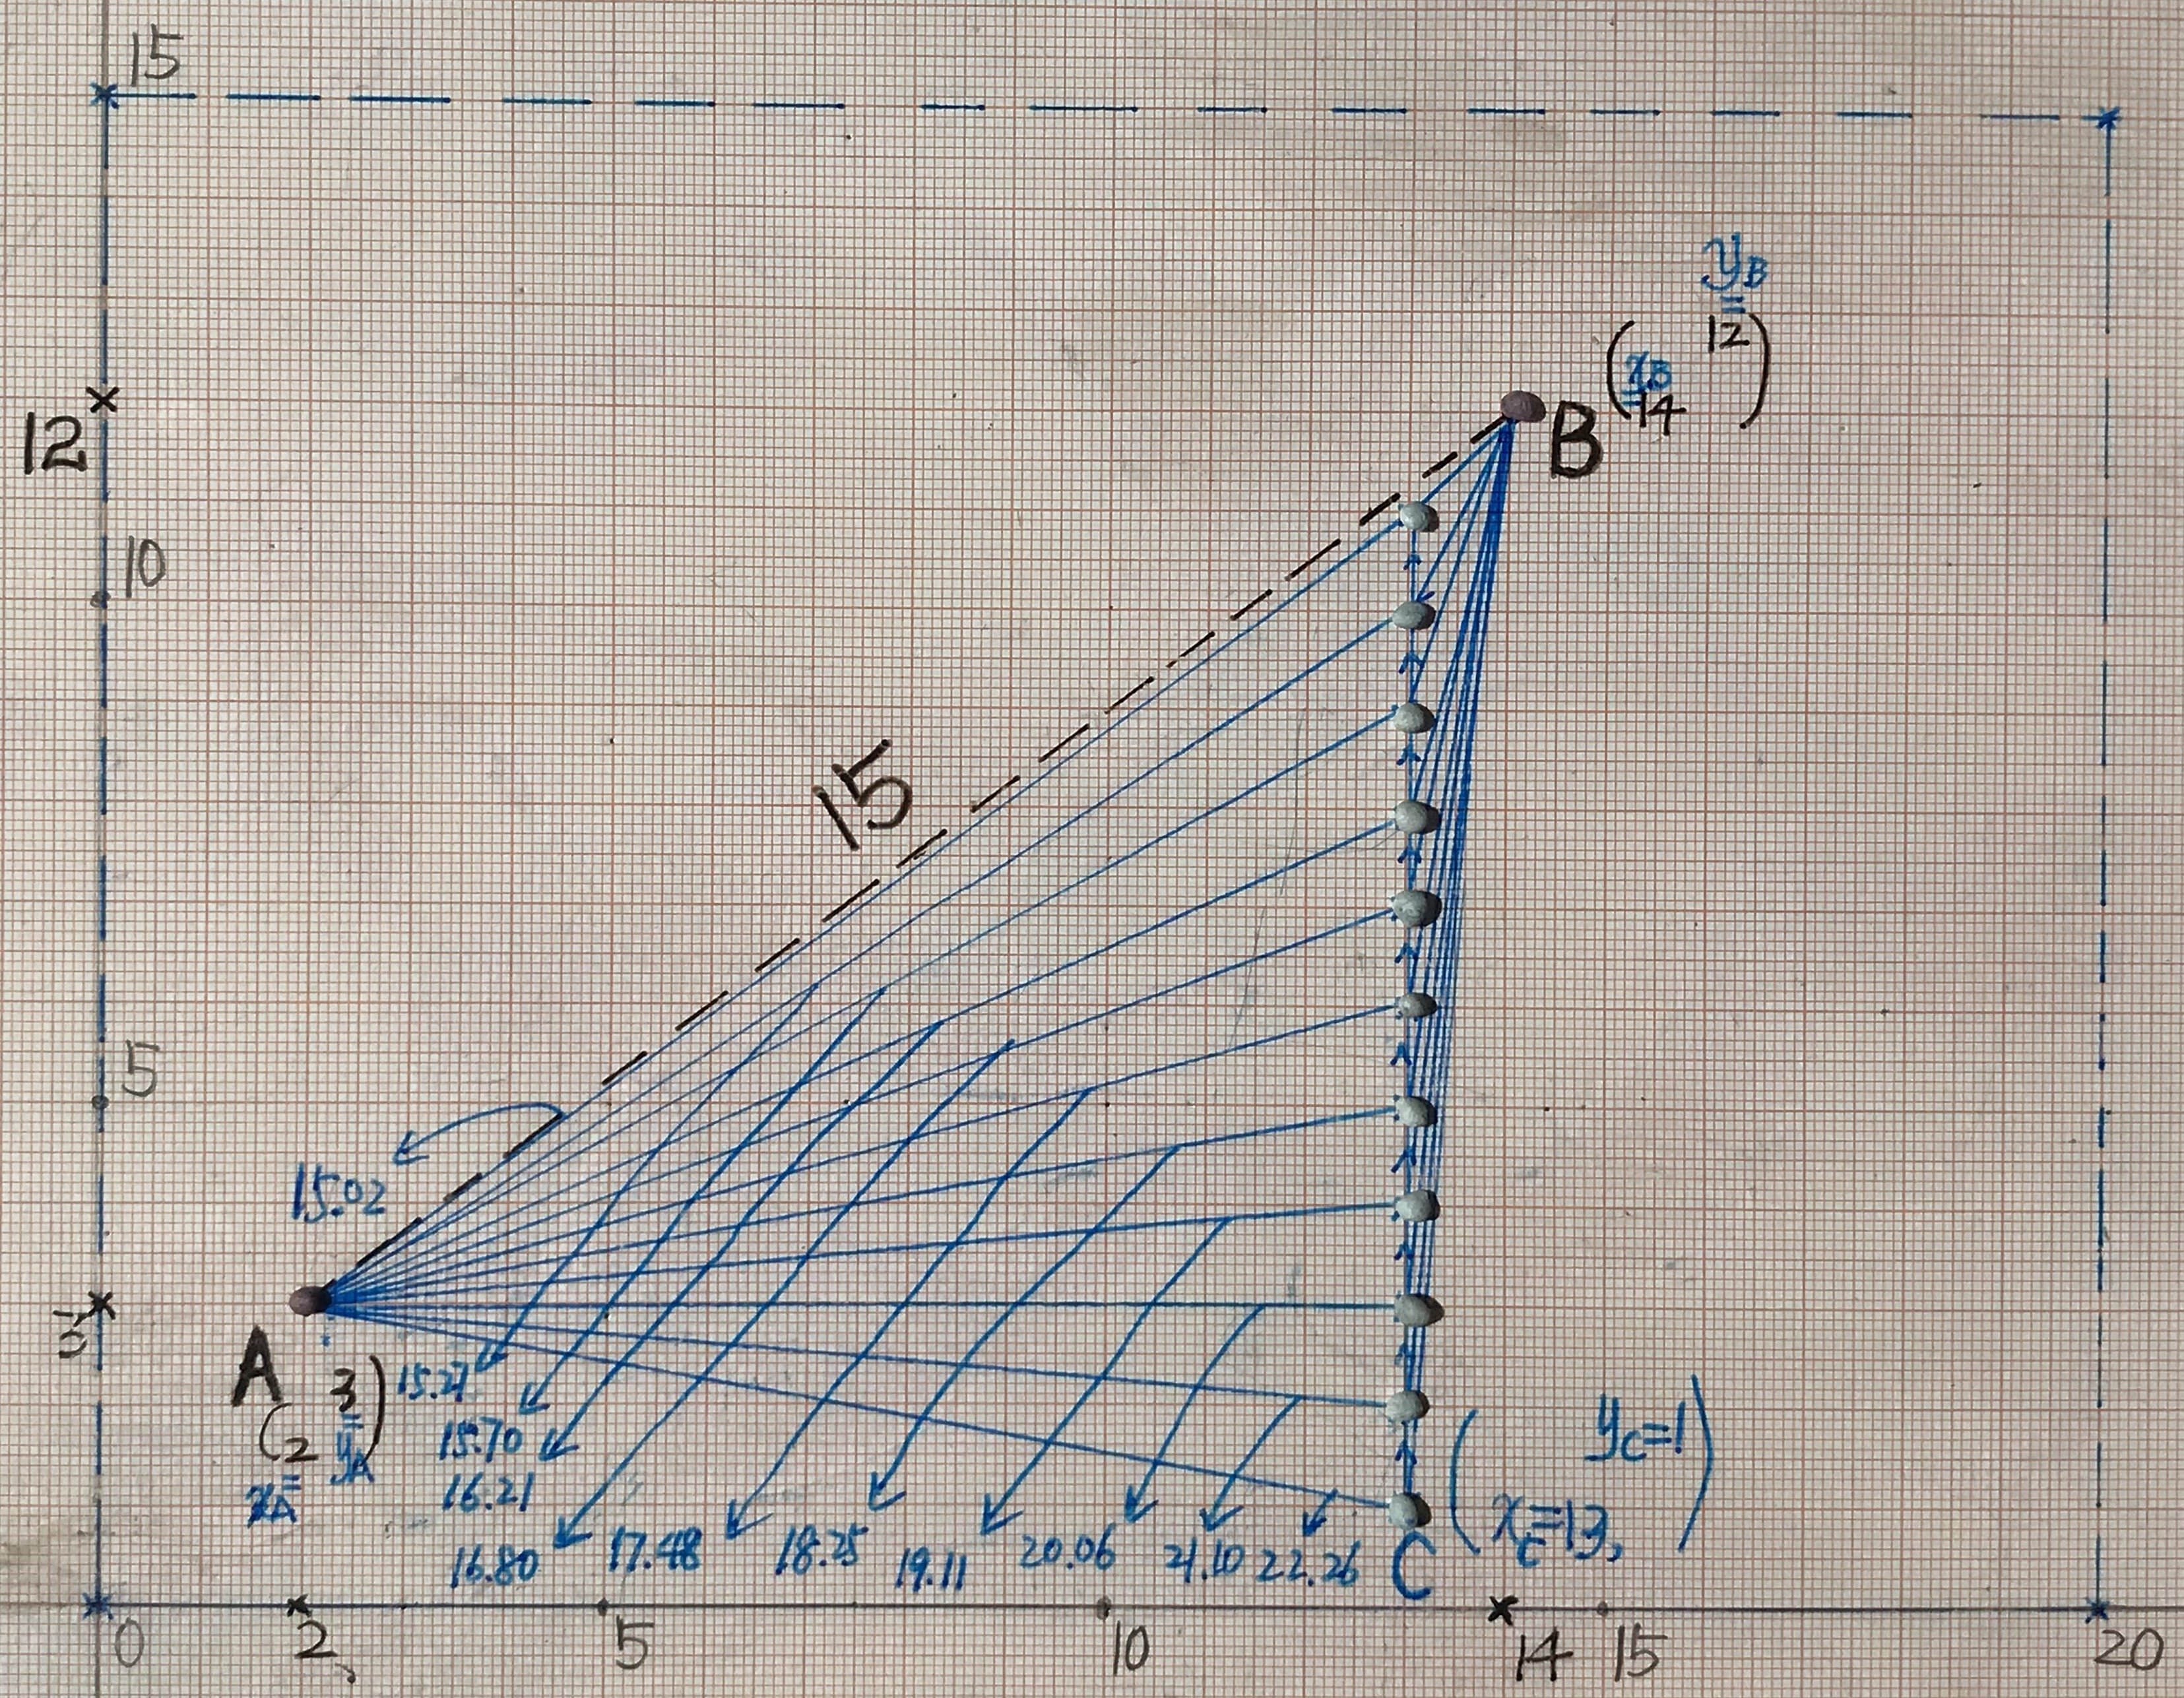 15
y_B
=
12
( x_B )
=
14
B
12
10
15
5
15.02
3
A
3
( 2 = )
= y_A
x_A
15.27
15.70
16.21
16.80
17.48
18.25
19.11
20.06
21.10
22.26
C
( y_C=1
x_C=13, )
0
2
5
10
14
15
20